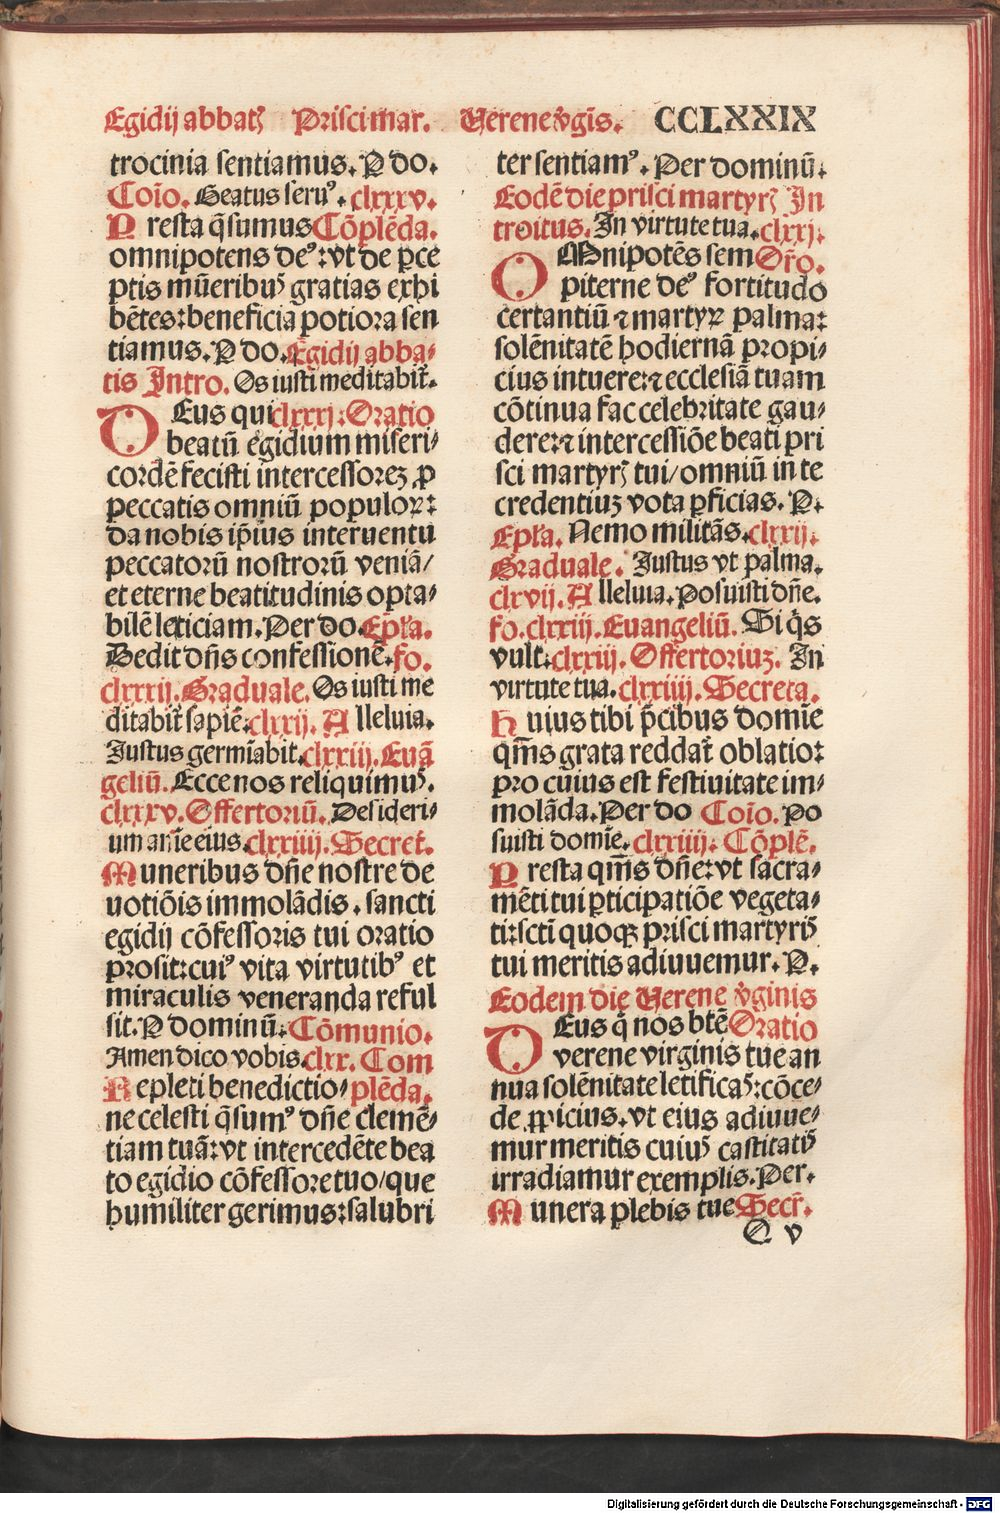 Egidij abbatꝭ Prisci mar. Verene v̓gīs. CCLXXIX
trocinia sentiamus. P do.
Coīo. Beatus seruꝰ. clxxxv.
Presta q̄sumus Cōplēda.
omnipotens deꝰ: vt de ꝑce
ptis mūeribuꝰ gratias exhi
bētes: beneficia potiora sen
tiamus. P do. Egidij abba-
tis Intro. Os iusti meditabit̄.
DEus qui clxxxj: Oratio
beatū egidium miseri-
cordē fecisti intercessoreꝫ ꝓ
peccatis omniū populoꝝ:
da nobis ip̄ius interuentu
peccatorū nostrorū veniā/
et eterne beatitudinis opta-
bilē leticiam. Per do. Ep̄la.
Dedit dn̄s confessionē. fo.
clxxxij. Graduale. Os iusti me
ditabit̄ sapiē. clxxij. Alleluia.
Justus germīabit. clxxiij. Euā
geliū. Ecce nos reliquimuꝰ.
clxxxv. Offertoriū. Desideri-
um anīe eius. clxxiiij. Secret̄.
Muneribus dn̄e nostre de
uotiōis immolādis. sancti
egidij cōfessoris tui oratio
prosit: cuiꝰ vita virtutibꝰ et
miraculis veneranda reful
sit. P dominū. Cōmunio.
Amen dico vobis. clxx. Com
Repleti benedictio- plēda.
ne celesti q̄sumꝰ dn̄e clemē-
tiam tuā: vt intercedēte bea
to egidio cōfessore tuo/que
humiliter gerimus: salubri
ter sentiamꝰ. Per dominū.
Eodē die prisci martyrꝭ In
troitus. In virtute tua. clxxj.
OMnipotēs sem Or̄o.
piterne deꝰ fortitudo
certantiū ⁊ martyꝝ palma:
solēnitatē hodiernā propi-
cius intuere: ⁊ ecclesiā tuam
cōtinua fac celebritate gau-
dere: ⁊ intercessiōe beati pri
sci martyrꝭ tui/omniū in te
credentiuꝫ vota ꝑficias. P.
Ep̄la. Nemo militās. clxxij.
Graduale. Justus vt palma.
clxvij. Alleluia. Posuisti dn̄e.
fo. clxxiij. Euangeliū. Si q̄s
vult. clxxiij. Offertoriuꝫ. In
virtute tua. clxxiiij. Secreta.
Huius tibi p̄cibus domīe
qm̄s grata reddat̄ oblatio:
pro cuius est festiuitate im-
molāda. Per do Coīo. Po
suisti domīe. clxxiiij. Cōplē.
Presta qm̄s dn̄e: vt sacra-
mēti tui ꝑticipatiōe vegeta-
ti: sctī quoqꝫ prisci martyrꝭ
tui meritis adiuuemur. P.
Eodem die Verene v̓ginis
DEus q̄ nos btē Oratio
verene virginis tue an
nua solēnitate letificaꝭ: cōce-
de ꝓpicius. vt eius adiuue-
mur meritis cuiuꝰ castitatꝭ
irradiamur exemplis. Per.
Munera plebis tue Secr̄.
Q v
Digitalisierung gefördert durch die Deutsche Forschungsgemeinschaft - DFG